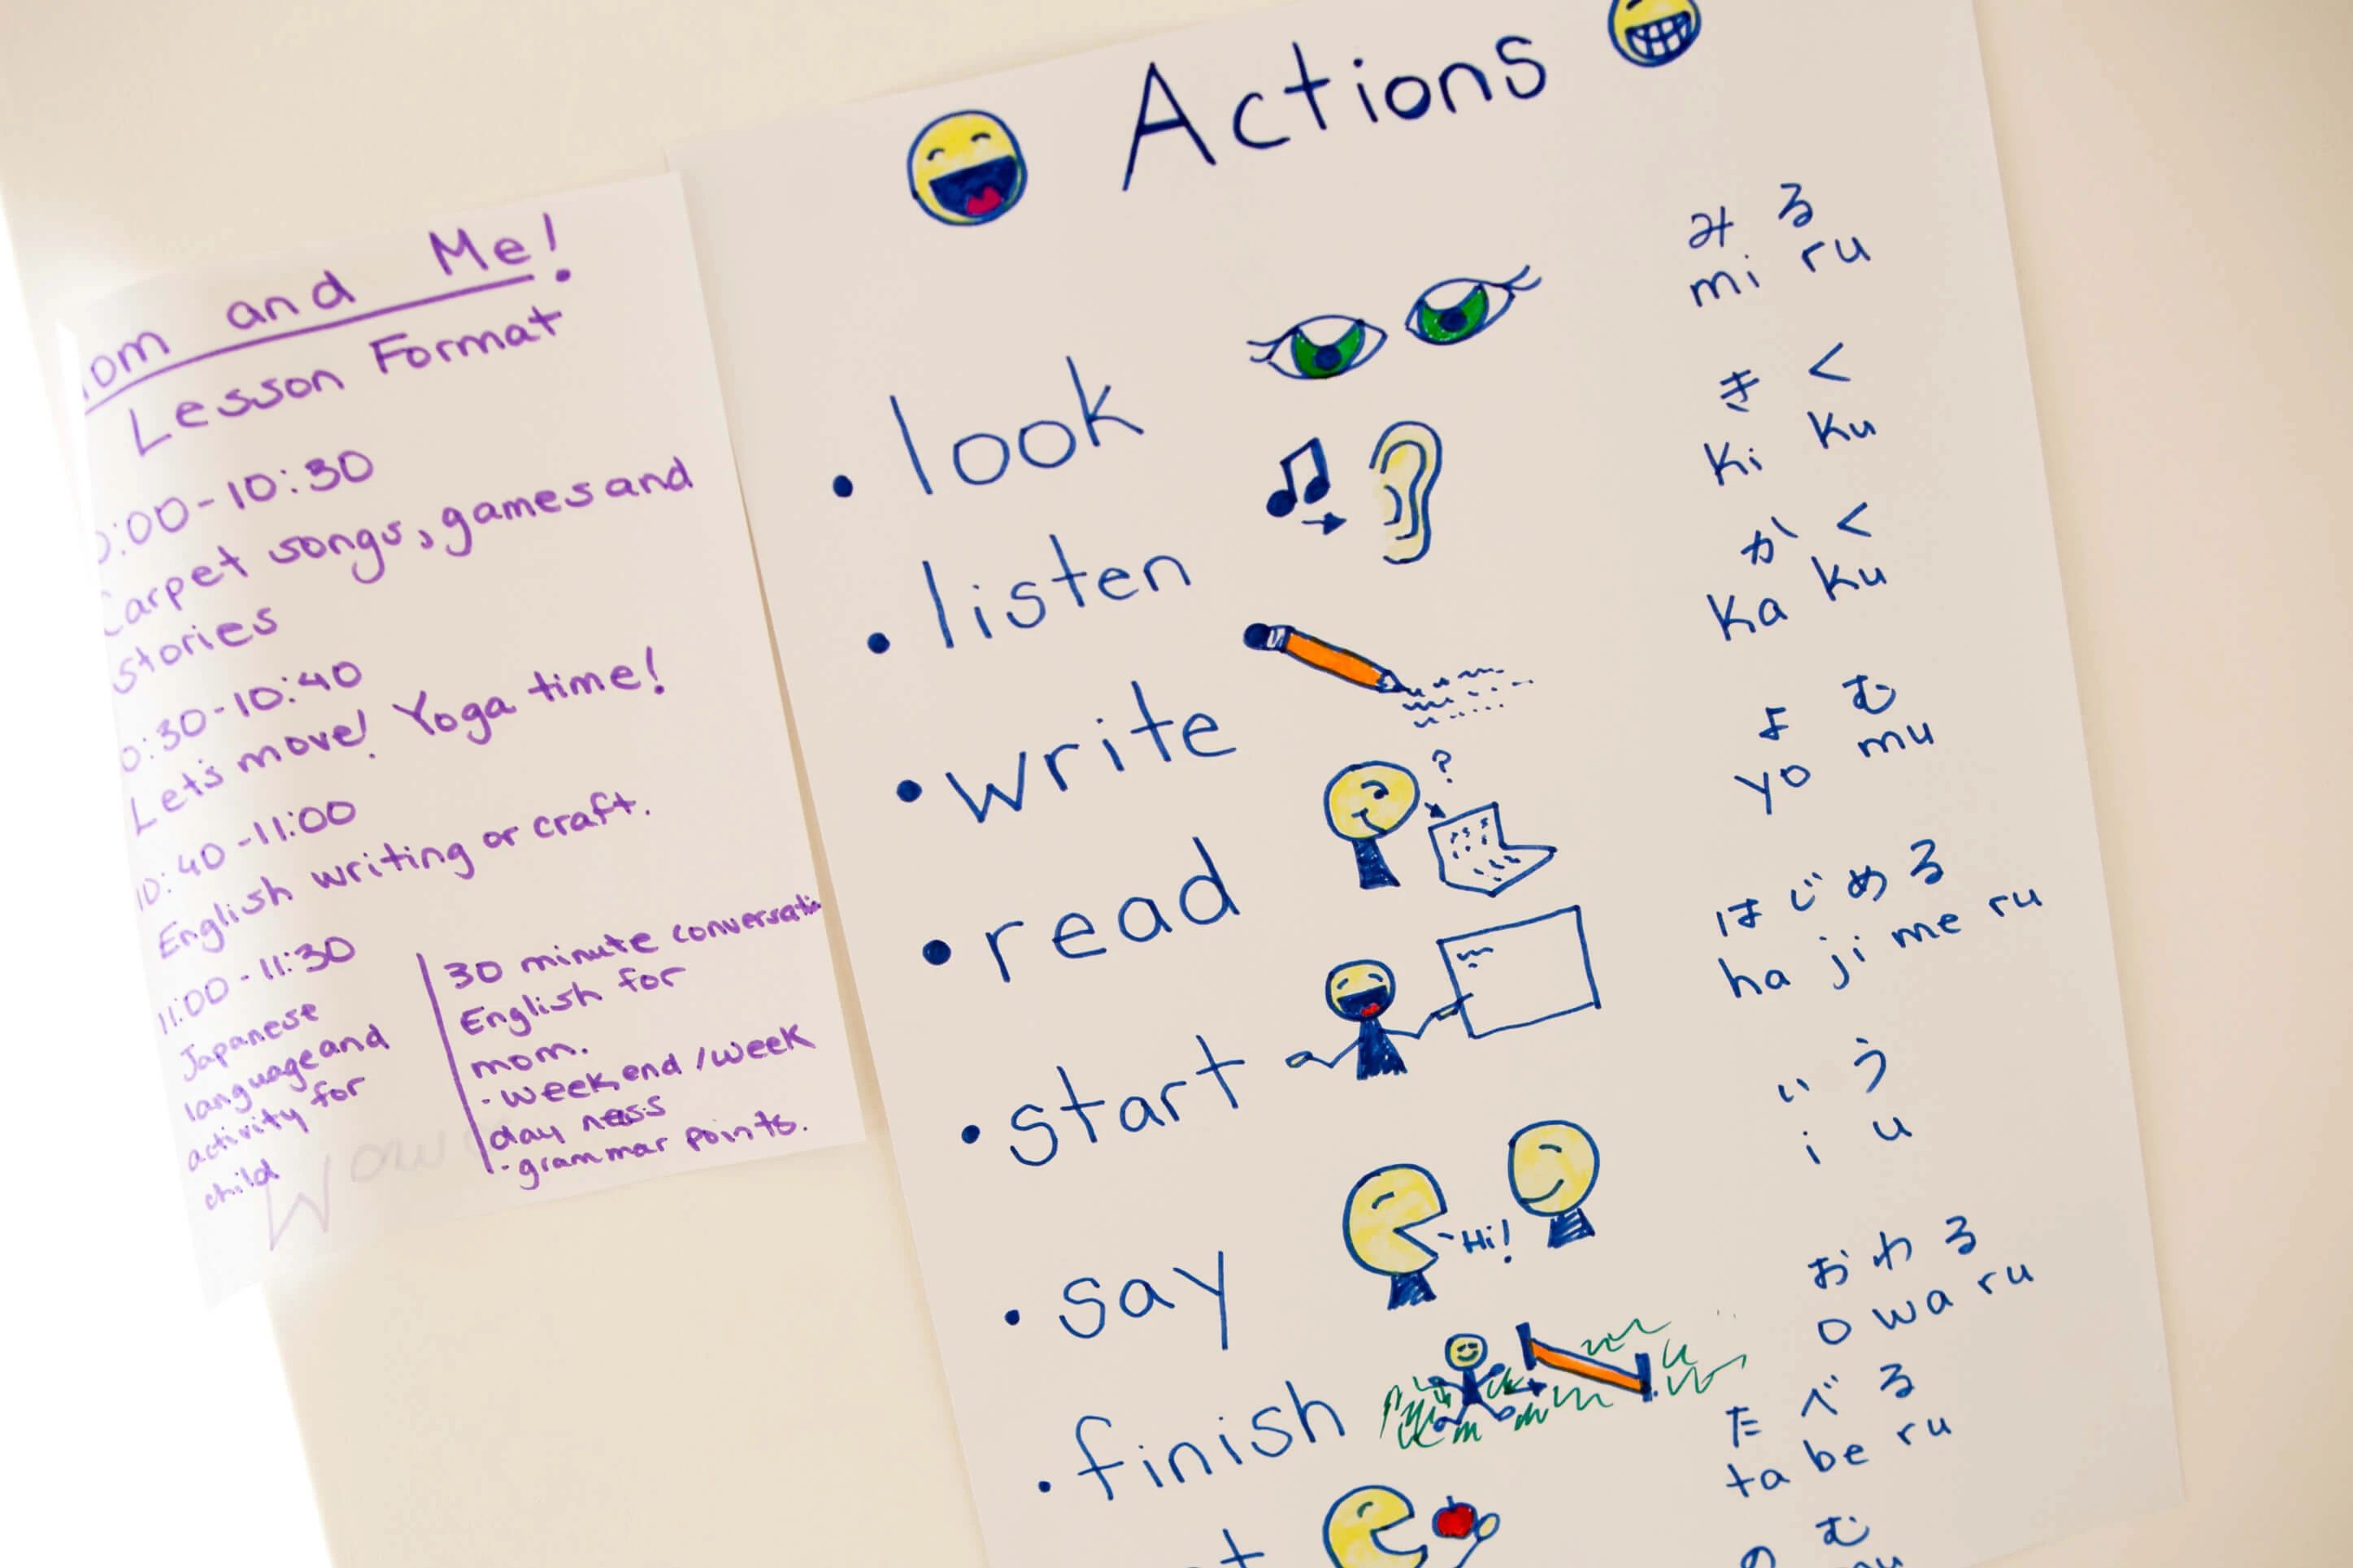 om and Me!
Lesson Format
0:00-10:30
Carpet songs, games and
stories
0:30-10:40
Let's move! Yoga time!
10:40-11:00
English writing or craft.
11:00-11:30
Japanese
language and
activity for
child
30 minute
English for
mom.
- weekend/week
day
- grammar points.
Wow
Actions
• look
みる
mi ru
• listen
きく
ki ku
• write
かく
ka ku
• read
?
よむ
yo mu
• start
はじめる
ha ji me ru
• say
Hi!
いう
i u
• finish
おわる
o wa ru
たべる
ta be ru
のむ